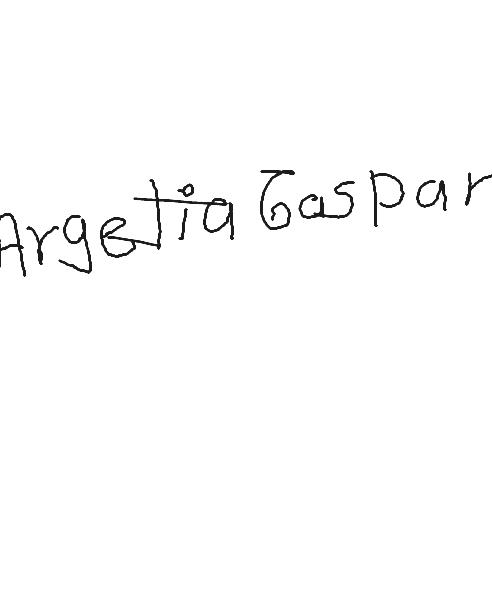 Argetia Gaspar